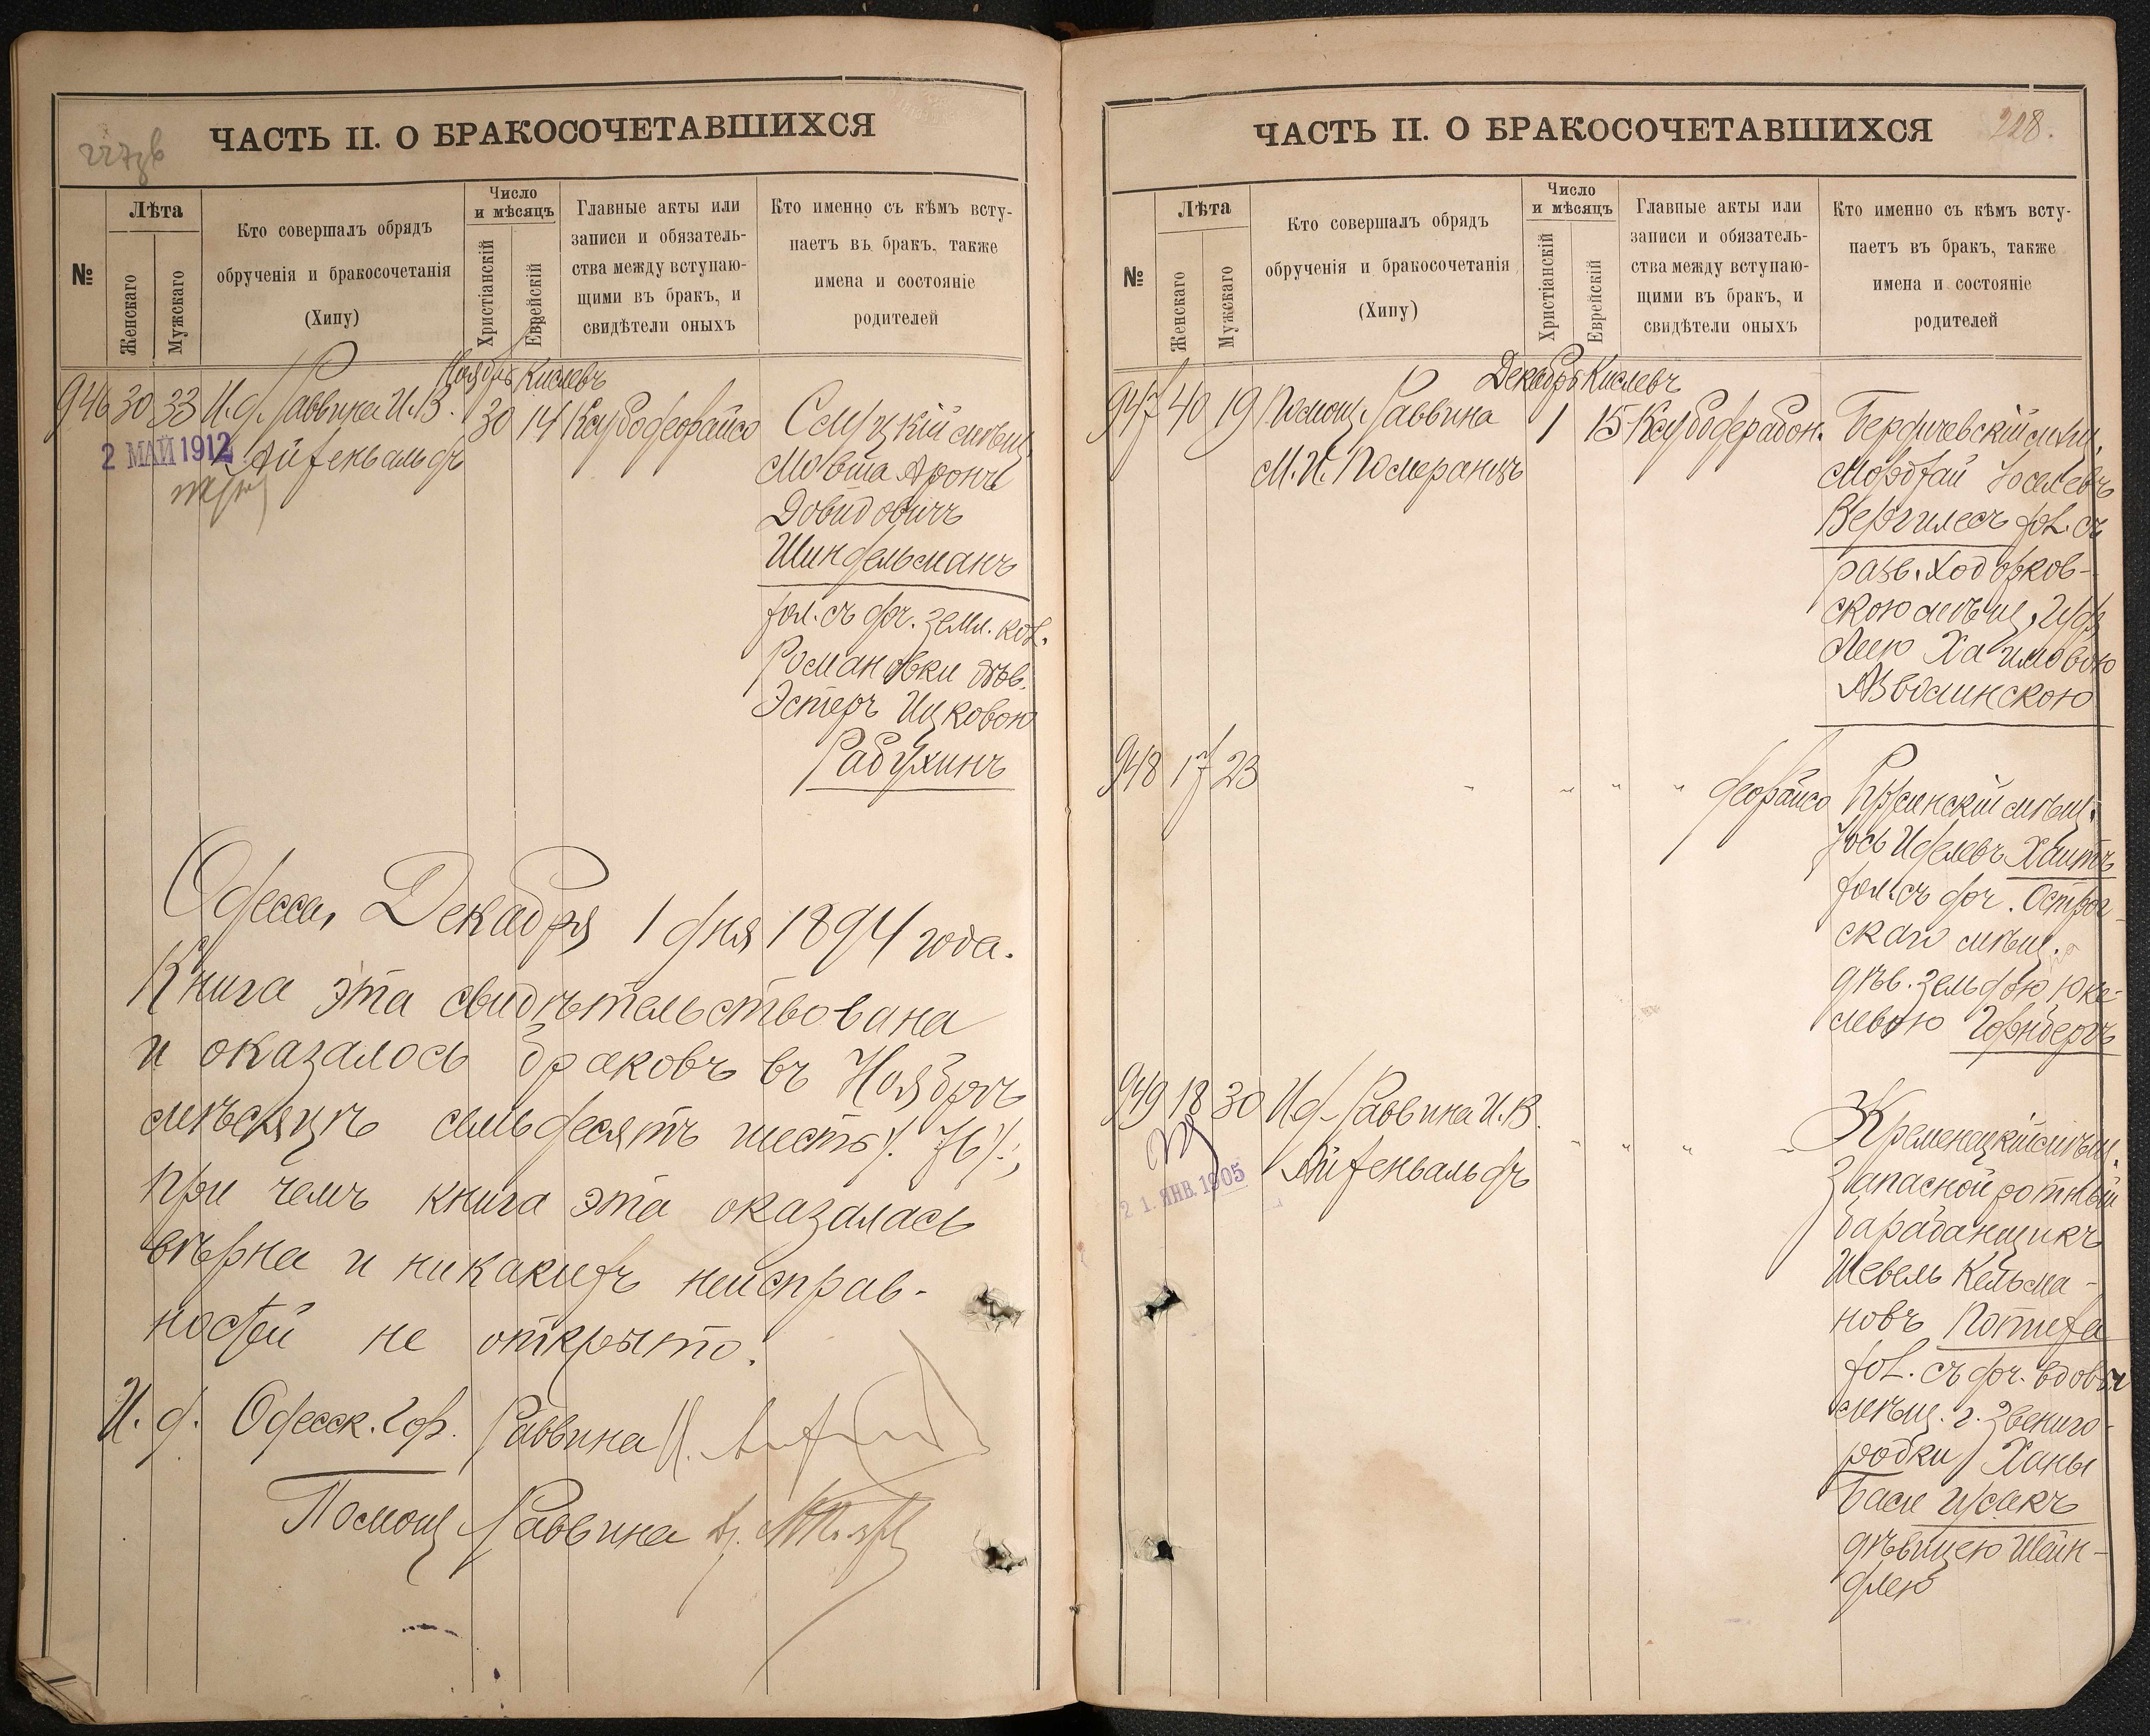 ЧАСТЬ II. О БРАКОСОЧЕТАВШИХСЯ
№
Лѣта
Женскаго
Мужскаго
Кто совершалъ обрядъ
обрученія и бракосочетанія
(Хипу)
Число
и мѣсяцъ
Христіанскій
Еврейскій
Главные акты или
записи и обязатель-
ства между вступаю-
щими въ бракъ, и
свидѣтели оныхъ
Кто именно съ кѣмъ всту-
паетъ въ бракъ, также
имена и состояніе
родителей
Ноябрь Кислевъ
946 30 33 И.д. Раввина И.В.
Айзенвальдъ
30 14
2 МАЙ 1912
мѣщ.
Мовша Аронъ
Довидовичъ
Шиндельманъ
хол. съ доч. земл. кол.
Романовки дѣв.
Эстеръ Ицковою
Рабухинъ
Одесса, Декабря 1 дня 1894 года.
Книга эта свидѣтельствована
и оказалось браковъ въ Ноябрѣ
мѣсяцѣ семьдесятъ шесть /76/,
при чемъ книга эта оказалась
вѣрна и никакихъ неисправ-
ностей не открыто.
И. д. Одесск. Гор. Раввина
Помощ. Раввина
ЧАСТЬ II. О БРАКОСОЧЕТАВШИХСЯ
228.
№
Лѣта
Женскаго
Мужскаго
Кто совершалъ обрядъ
обрученія и бракосочетанія
(Хипу)
Число
и мѣсяцъ
Христіанскій
Еврейскій
Главные акты или
записи и обязатель-
ства между вступаю-
щими въ бракъ, и
свидѣтели оныхъ
Кто именно съ кѣмъ всту-
паетъ въ бракъ, также
имена и состояніе
родителей
Декабрь Кислевъ
947 40 19 Помощ. Раввина
М.И. Померанцъ
1 15
Бердичевскій мѣщ.
Мордхай Іоселевъ
Вергилесъ хол. съ
разв. Ходорков-
скою мѣщ.
Леею Хаимовою
Аввоминскою
948 17 23 " " " "
мѣщ.
Іось
хол. съ доч. Острог-
скаго мѣщ.
дѣв. Зельдою Юке-
левою Горнбергъ
949 18 30 И.д. Раввина И.В.
Айзенвальдъ
" " " "
21. ЯНВ. 1905
Кременецкій мѣщ.
Запасной ротный
барабанщикъ
Шевель Кельма-
новъ Потиха
хол. съ доч. вдовы
мѣщ. г. Звениго-
родки Ханы
Баси Исакъ
дѣвицею Шейн-
длею